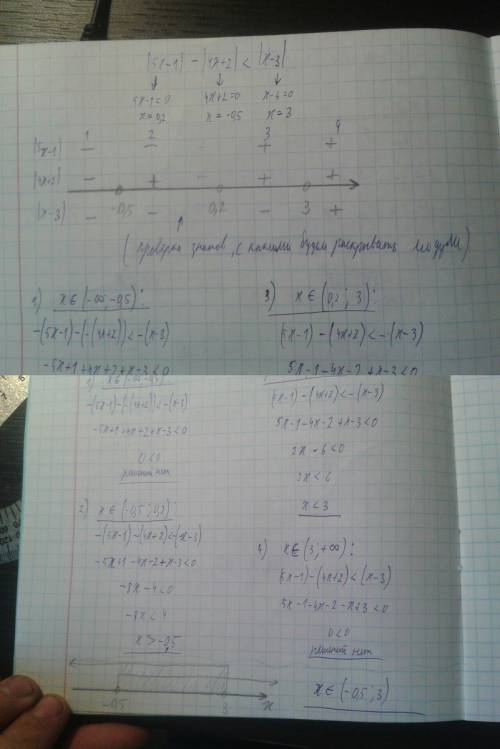 |5x-1| - |4x+2| < |x-3|
↓ ↓ ↓
5x-1=0 4x+2=0 x-4=0
x=0,2 x=-0,5 x=3
1 2 3 4
|5x-1| - - + +
|4x+2| - + + +
-0,5 0,2 3
|x-3| - - - +
(проверка знаков, с какими будем раскрывать модули)
1) x∈(-∞;-0,5):
-(5x-1)-(-(4x+2))<-(x-3)
-5x+1+4x+2+x-3<0
3) x∈(0,2;3):
(5x-1)-(4x+2)<-(x-3)
5x-1-4x-2+x-3<0
1) x∈(-∞;-0,5):
-(5x-1)-(-(4x+2))<-(x-3)
-5x+1+4x+2+x-3<0
0<0
решений нет
2) x∈(-0,5;0,2)
-(5x-1)-(4x+2)<-(x-3)
-5x+1-4x-2+x-3<0
-8x-4<0
-8x<4
x>-0,5
(5x-1)-(4x+2)<-(x-3)
5x-1-4x-2+x-3<0
2x-6<0
2x<6
x<3
4) x∈(3;+∞):
(5x-1)-(4x+2)<(x-3)
5x-1-4x-2-x+3<0
0<0
решений нет
-0,5 3 x
x∈(-0,5;3)